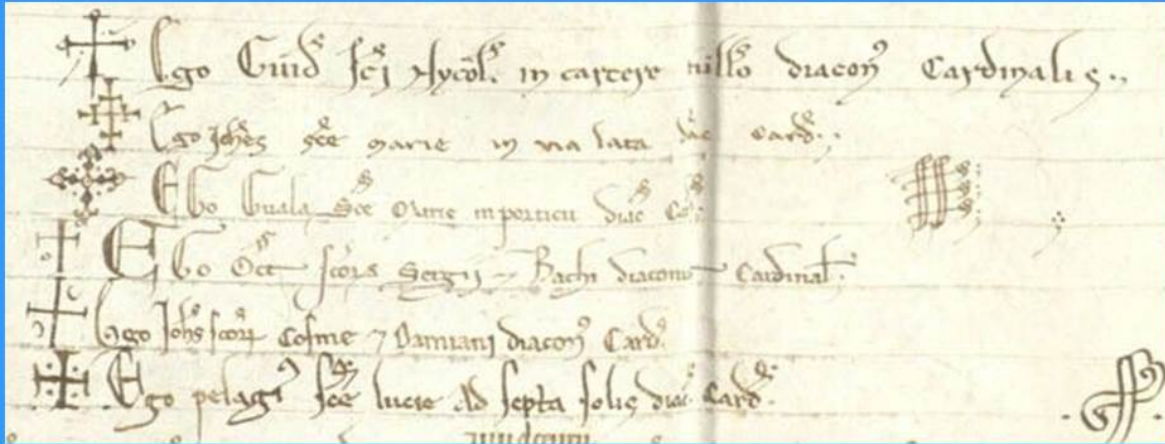 Ego Guid sci Nycol. in carcere tullo diacon Cardinalis.
Ego Johes sce marie in via lata diac Card.
Ego Guala Sce Marie in porticu diac Car.
Ego Oct scor Sergii ⁊ Bachi diacon Cardinal.
Ego Johs scor Cosme ⁊ Damiani diacon Card.
Ego pelagi sce lucie Ad septa solis diac Card.